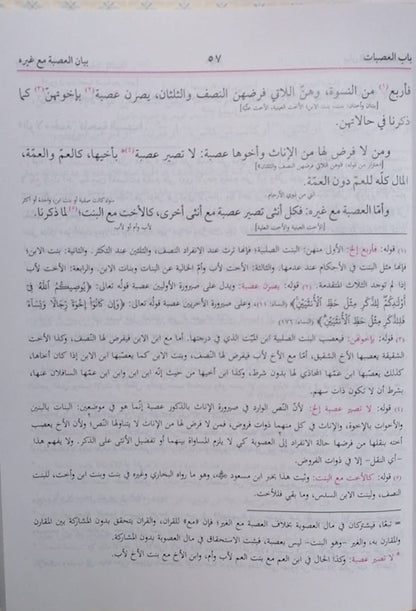 باب العصبات ٥٧ بيان العصبة مع غيره
فأربع(١) من النسوة، وهنّ اللاتي فرضهن النصف والثلثان، يصرن عصبة(٢) بإخوتهنّ(٣) كما
ذكرنا في حالاتهن.
ومن لا فرض لها من الإناث وأخوها عصبة: لا تصير عصبة(٤)* بأخيها، كالعم والعمة،
المال كله للعمّ دون العمّة.
وأمّا العصبة مع غيره: فكل أنثى تصير عصبة مع أنثى أخرى، كالأخت مع البنت(٥)؛ لما ذكرنا.
(١) قوله: فأربع إلخ: الأولى منهن: البنت الصلبية؛ فإنها ترث عند الانفراد النصف، والثلثين عند التكثر. والثانية: بنت الابن؛
فإنها مثل البنت في الأحكام عند عدمها. والثالثة: الأخت لأب وأمّ الخالية عن البنات وبنات الابن. والرابعة: الأخت لأب
إذا لم توجد الثلاث المتقدمة. (٢) قوله: يصرن عصبة: ويدل على صيرورة الأوليين عصبة قولُه تعالى: ﴿يُوصِيكُمُ اللَّهُ فِي
أَوْلَادِكُمْ لِلذَّكَرِ مِثْلُ حَظِّ الْأُنْثَيَيْنِ﴾ (النساء: ١١)، وعلى صيرورة الأخريين عصبة قولُه تعالى: ﴿وَإِنْ كَانُوا إِخْوَةً رِجَالًا وَنِسَاءً
فَلِلذَّكَرِ مِثْلُ حَظِّ الْأُنْثَيَيْنِ﴾ (النساء: ١٧٦)
(٣) قوله: بإخوتهن: فيعصب البنت الصلبية ابن الميّت الذي في درجتها. أما مع ابن الابن فيفرض لها النصف، وكذا الأخت
الشقيقة يعصبها الأخ الشقيق، أمّا مع الأخ لأب فيفرض لها النصف، وبنت الابن كما يعصبها ابن الابن إذا كان أخاها،
كذلك يعصبها ابن عمها المحاذي لها بدون شرط، وكذا ابن أخيها من حيث إنه ابن ابن وابن ابن عمّها السافلان عنها،
بشرط أن لا يكون ذات سهم.
(٤) قوله: لا تصير عصبة إلخ: لأنّ النصّ الوارد في صيرورة الإناث بالذكور عصبة إنّما هو في موضعين: البنات بالبنين
والأخوات بالإخوة، والإناث في كل منهما ذوات فروض، فمن لا فرض لها من الإناث لا يتناولها النص؛ ولأن الأخ يعصب
أخته بنقلها من فرضها حالة الانفراد إلى العصوبة كي لا يلزم المساواة بينهما أو تفضيل الأنثى على الذكر. ولا يفهم هذا
-أي النقل- إلا في ذوات الفروض.
(٥) قوله: كالأخت مع البنت: وثبت هذا بخبر ابن مسعود وهو ما رواه البخاري وغيره في بنت وبنت ابن وأخت، للبنت
النصف، ولبنت الابن السدس، وما بقي فللأخت.
= تبعًا، فيشتركان في مال العصوبة بخلاف العصبة مع الغير؛ فإن «مع» للقران، والقران يتحقق بدون المشاركة بين المقارن
والمقارن به، والغير -وهو البنت- ليس بعصبة، فيثبت الاستحقاق في مال العصوبة بدون المشاركة.
* لا تصير عصبة: وكذا الحال في ابن العم مع بنت العم لأب وأم، وابن الأخ مع بنت الأخ لأب.